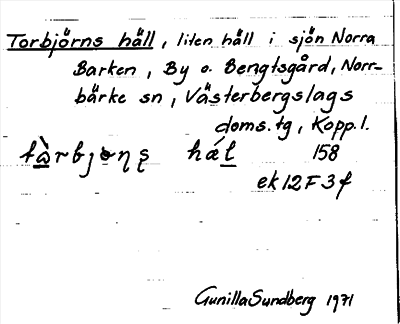 Torbjörns häll, liten häll i sjön Norra
Barken, By o. Bengtsgård, Norr-
bärke sn, Västerbergslags
doms.tg, Kopp.l.
158
ek 12 F 3 f
Gunilla Sundberg 1971